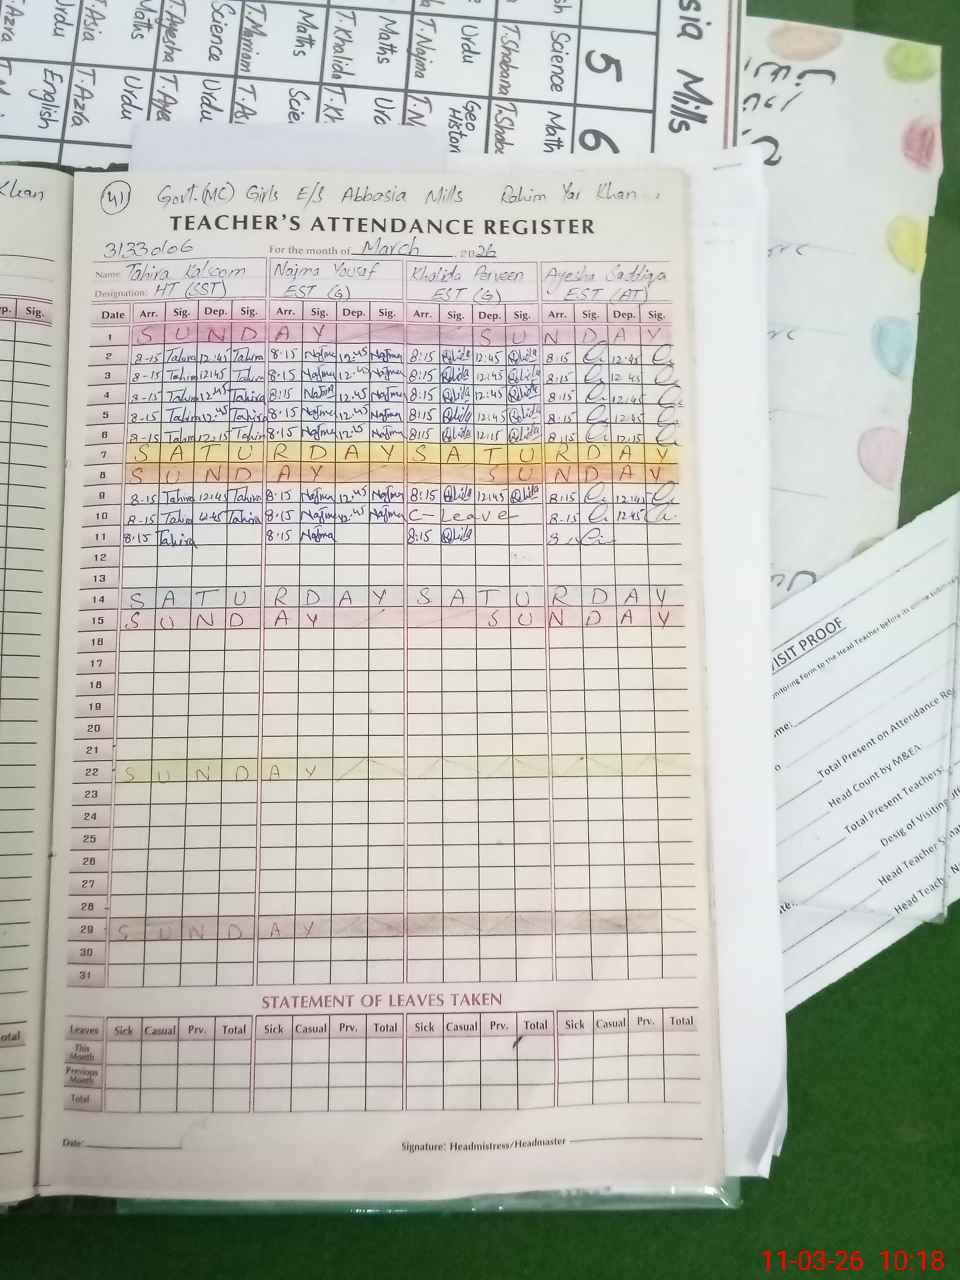 sia Mills
5
6
sh Science Math
T.Shabana T.Shabe
Urdu Geo Histor
T.Najma T.N
Maths Urd
T.Khalida T.Kh
Maths Scie
T.Mariam T.A
Science Urdu
T.Ayesha T.Aye
Maths Urdu
T.Asia T.Azra
Urdu English
T.Azra
Khan
41 Govt.(MC) Girls E/S Abbasia Mills Rahim Yar Khan
TEACHER'S ATTENDANCE REGISTER
31330106 For the month of March 2026
Name Tahira Kalsoom Najma Yousaf Khalida Perveen Ayesha Saddiqa
Designation: HT (SST) EST (G) EST (G) EST (AT)
Date Arr. Sig. Dep. Sig. Arr. Sig. Dep. Sig. Arr. Sig. Dep. Sig. Arr. Sig. Dep. Sig.
1 S U N D A Y S U N D A Y
2 8-15 Tahira 12:45 Tahira 8:15 Najma 12:45 Najma 8:15 12:45 8:15 12:45
3 8-15 Tahira 12:45 Tahira 8:15 Najma 12:45 Najma 8:15 12:45 8:15 12:45
4 8-15 Tahira 12:45 Tahira 8:15 Najma 12:45 Najma 8:15 12:45 8:15 12:45
5 8-15 Tahira 12:45 Tahira 8:15 Najma 12:45 Najma 8:15 12:45 8:15 12:45
6 8-15 Tahira 12:15 Tahira 8:15 Najma 12:15 Najma 8:15 12:15 8:15 12:15
7 S A T U R D A Y S A T U R D A Y
8 S U N D A Y S U N D A Y
9 8-15 Tahira 12:45 Tahira 8:15 Najma 12:45 Najma 8:15 12:45 8:15 12:45
10 8-15 Tahira 12:45 Tahira 8:15 Najma 12:45 Najma C-Leave 8-15 12:45
11 8:15 Tahira 8:15 Najma 8:15 8:15
12
13
14 S A T U R D A Y S A T U R D A Y
15 S U N D A Y S U N D A Y
16
17
18
19
20
21
22 S U N D A Y
23
24
25
26
27
28
29 S U N D A Y
30
31
STATEMENT OF LEAVES TAKEN
Leaves Sick Casual Prv. Total Sick Casual Prv. Total Sick Casual Prv. Total Sick Casual Prv. Total
This Month
Previous Month
Total
Date: Signature: Headmistress/Headmaster
p. Sig.
otal
ISIT PROOF
nitoring Form to the Head Teacher before its online submis
me:
Total Present on Attendance Re
Head Count by M&EA
Total Present Teachers
Desig of Visiting
Head Teacher
Head Teacher N
11-03-26 10:18